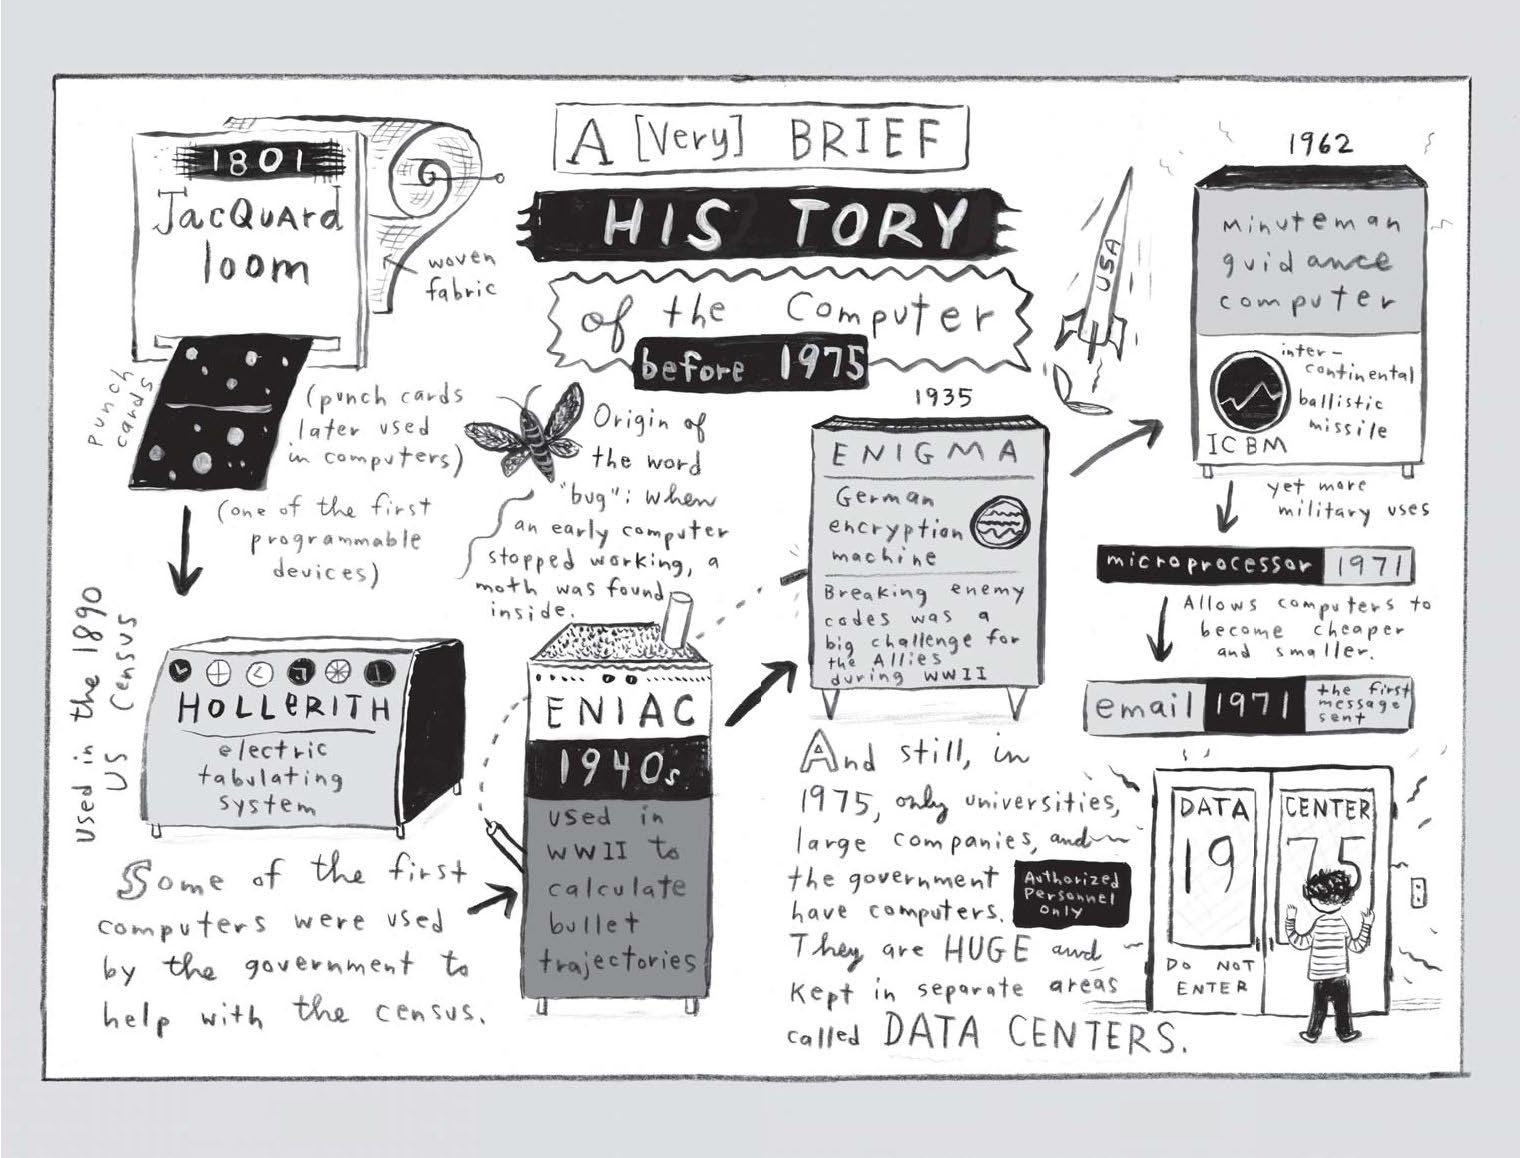 A [Very] BRIEF
HISTORY
of the Computer
before 1975
1801
JacQuard
loom
woven
fabric
punch
cards
(punch cards
later used
in computers)
(one of the first
programmable
devices)
Used in the 1890
US Census
HOLLERITH
electric
tabulating
system
Some of the first
computers were used
by the government to
help with the census.
Origin of
the word
"bug": when
an early computer
stopped working, a
moth was found
inside.
ENIAC
1940s
used in
WWII to
calculate
bullet
trajectories
1935
ENIGMA
German
encryption
machine
Breaking enemy
codes was a
big challenge for
the Allies
during WWII
USA
1962
Minuteman
guidance
computer
inter-
continental
ballistic
missile
ICBM
yet more
military uses
microprocessor 1971
Allows computers to
become cheaper
and smaller.
email 1971 the first
message
sent
And still, in
1975, only universities,
large companies, and
the government
have computers.
They are HUGE and
kept in separate areas
called DATA CENTERS.
Authorized
Personnel
Only
DATA CENTER
19 75
DO NOT
ENTER